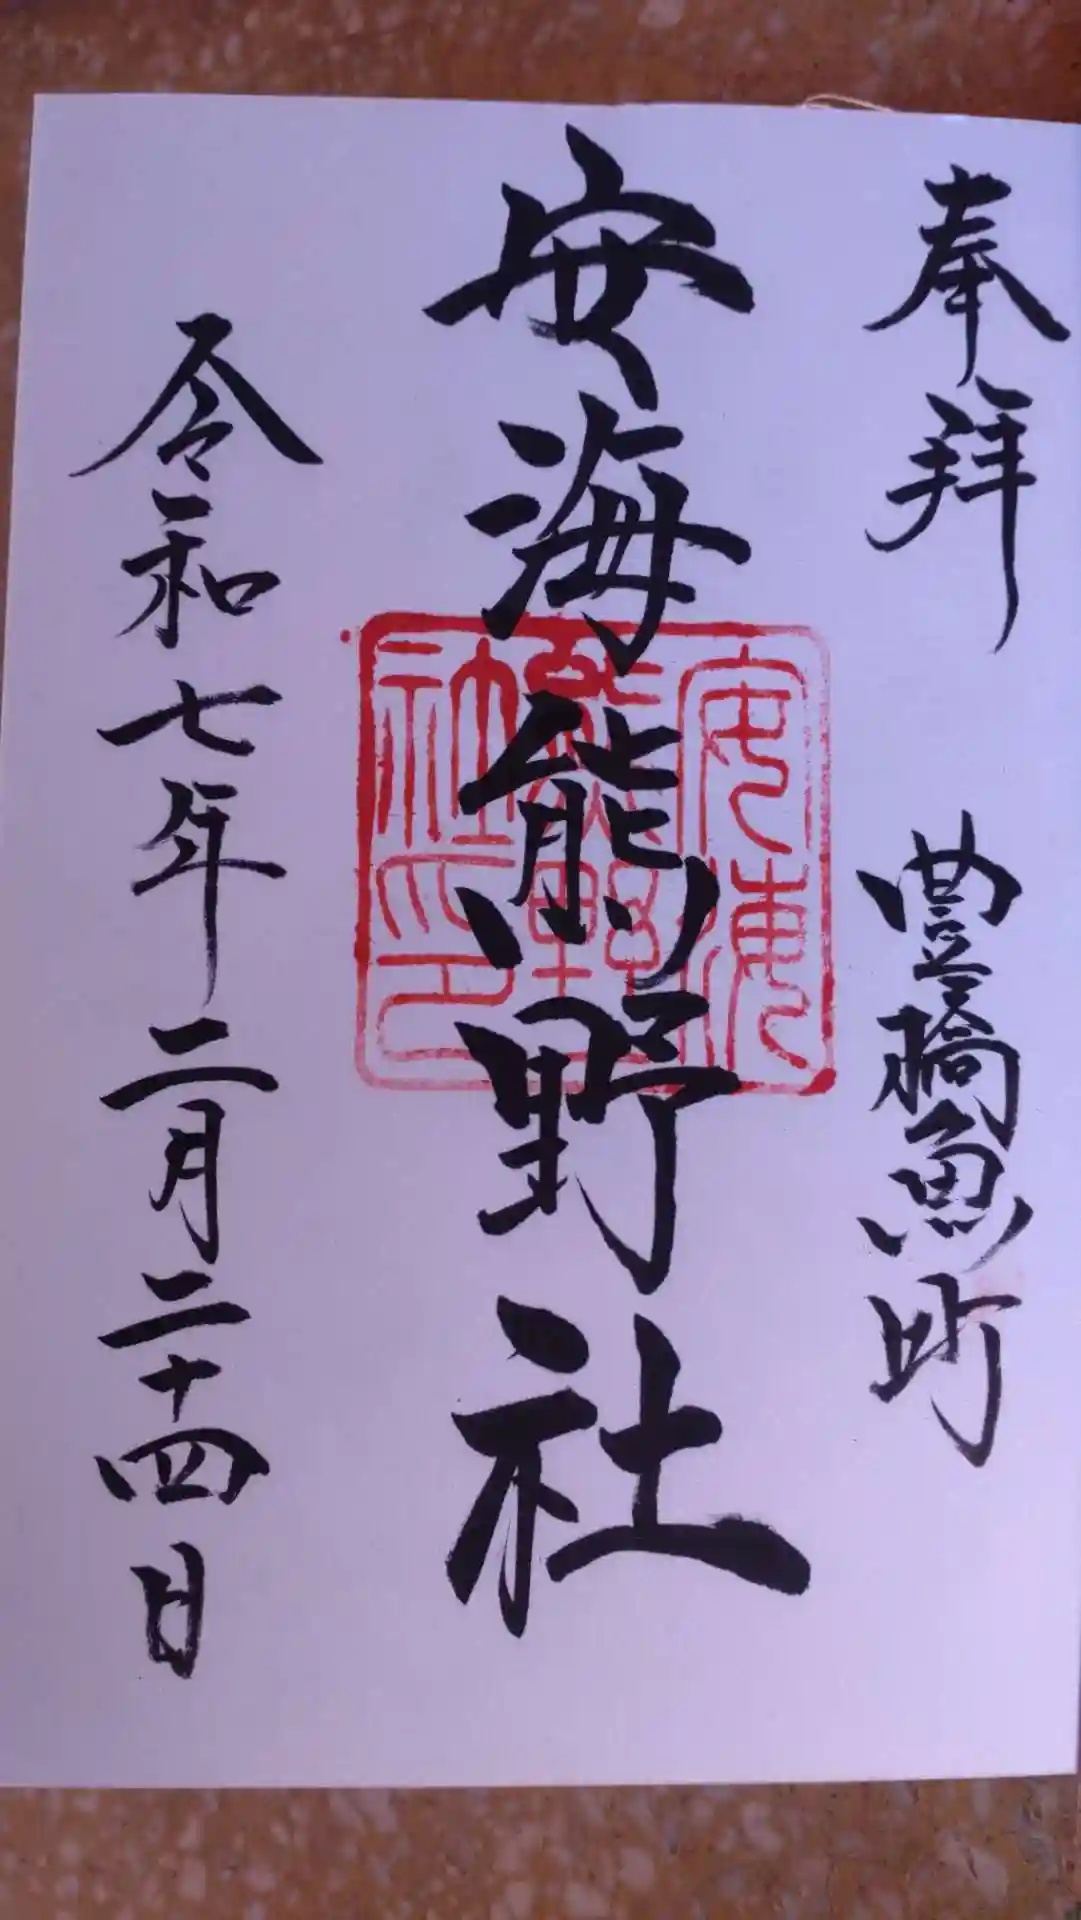 奉拝
豊橋魚町
安海熊野社
安海熊野社印
令和七年二月二十四日